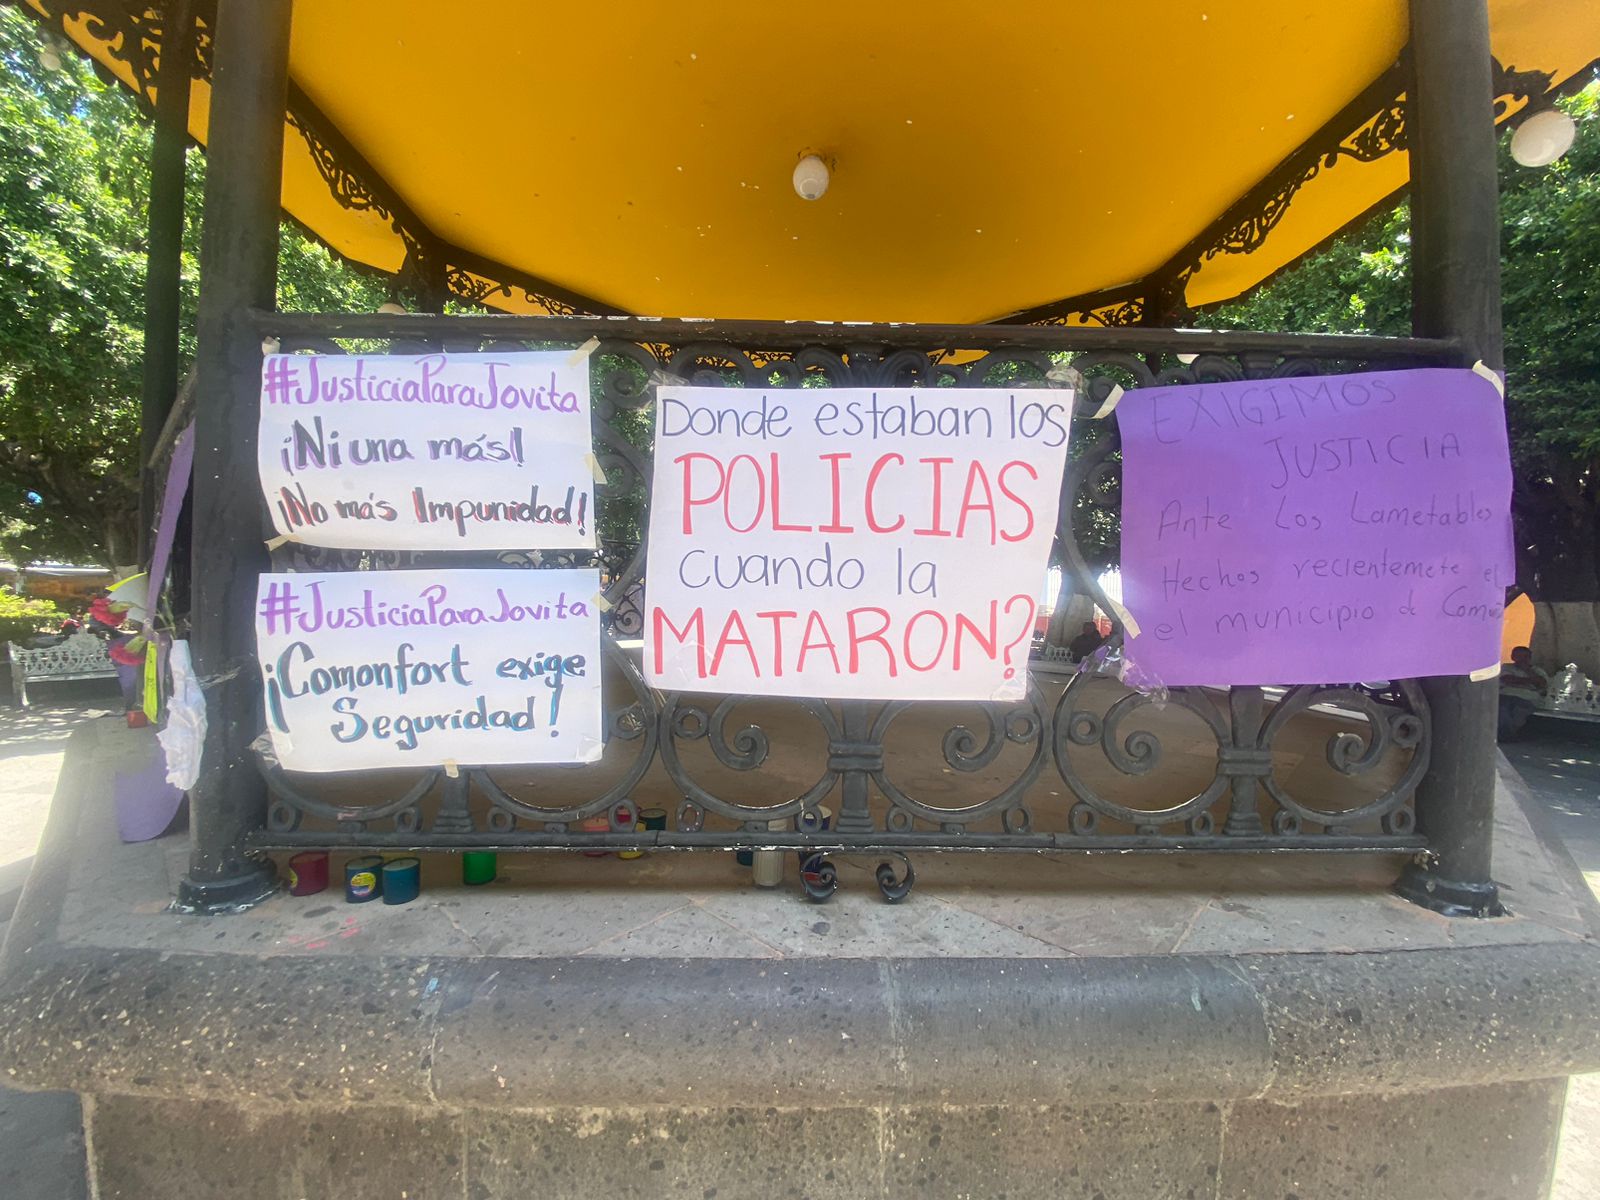 #JusticiaParaJovita
¡Ni una más!
¡No más Impunidad!
#JusticiaParaJovita
¡Comonfort exige
Seguridad!
Donde estaban los
POLICIAS
cuando la
MATARON?
EXIGIMOS
JUSTICIA
Ante Los Lametables
Hechos recientemete el
el municipio de